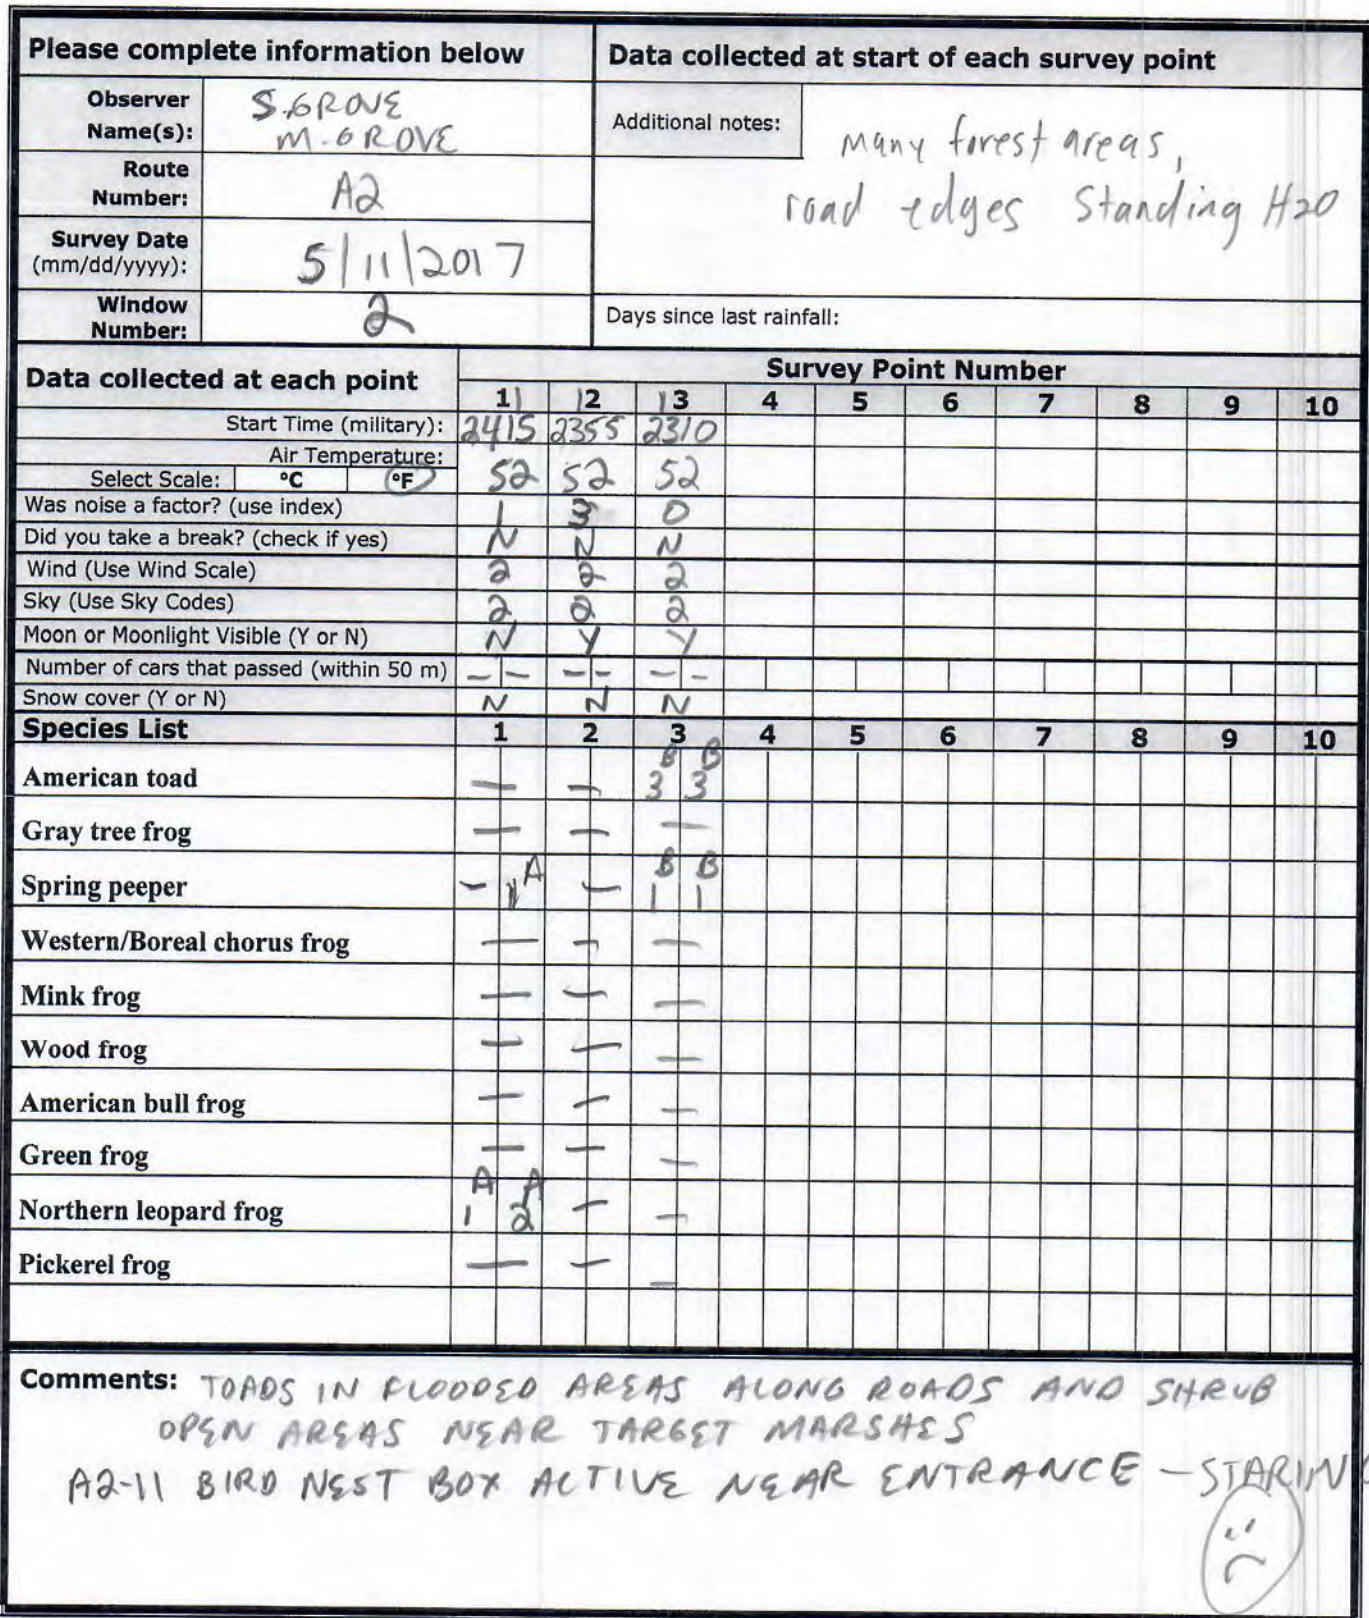 Please complete information below
Data collected at start of each survey point
Observer Name(s): S. GROVE
M. GROVE
Additional notes: Many forest areas,
road edges Standing H2O
Route Number: A2
Survey Date (mm/dd/yyyy): 5/11/2017
Window Number: 2
Days since last rainfall:
Data collected at each point
Survey Point Number
11 12 13 4 5 6 7 8 9 10
Start Time (military): 2415 2355 2310
Air Temperature:
Select Scale: °C °F 52 52 52
Was noise a factor? (use index) 1 3 0
Did you take a break? (check if yes) N N N
Wind (Use Wind Scale) 2 2 2
Sky (Use Sky Codes) 2 2 2
Moon or Moonlight Visible (Y or N) N Y Y
Number of cars that passed (within 50 m) - - - - - -
Snow cover (Y or N) N N N
Species List 1 2 3 4 5 6 7 8 9 10
B B
American toad — — 3 3
Gray tree frog — — —
A B B
Spring peeper - 1 — 1 1
Western/Boreal chorus frog — — —
Mink frog — — —
Wood frog — — —
American bull frog — — —
Green frog — — —
A A
Northern leopard frog 1 2 — —
Pickerel frog — — —
Comments: TOADS IN FLOODED AREAS ALONG ROADS AND SHRUB
OPEN AREAS NEAR TARGET MARSHES
A2-11 BIRD NEST BOX ACTIVE NEAR ENTRANCE - STARLING